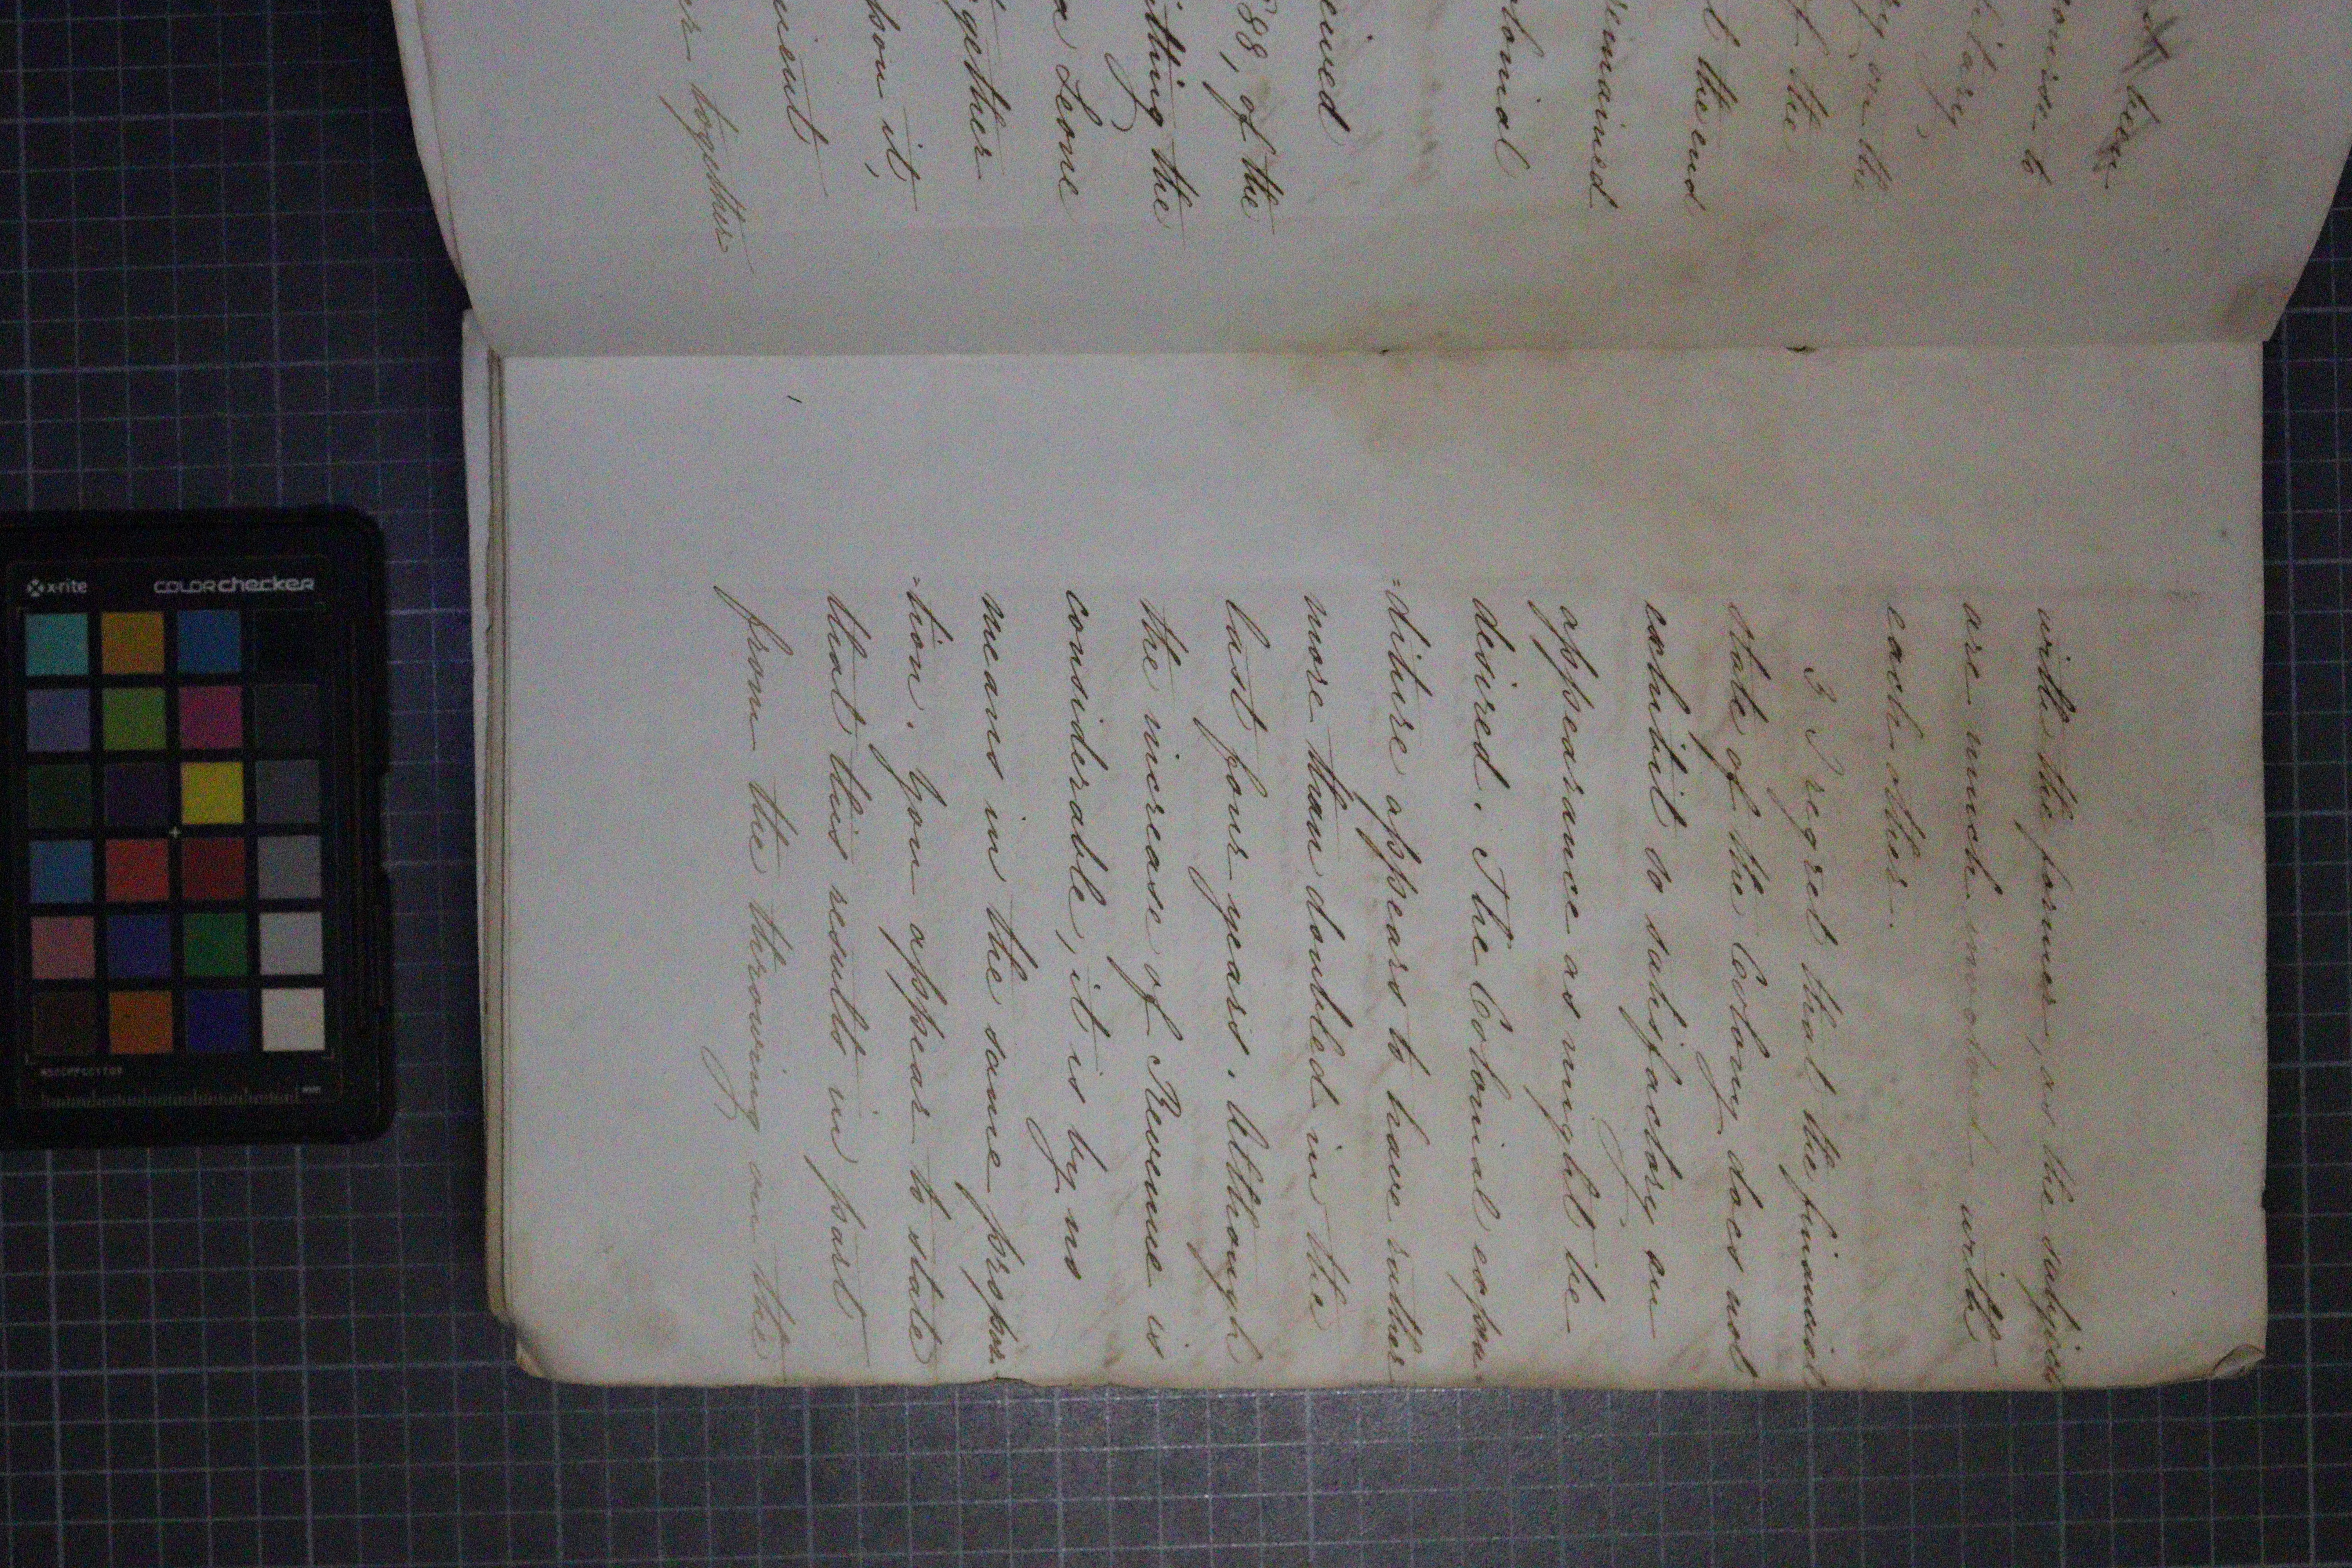 t been
romise to
litary
ry on the
f the
t the end
remained
olonial
eived
88, of the
itting the
a Leone
gether
pon it,
ment
er together
with the former, as the subjects
are much involved with
each other.
3 I regret that the financial
state of the Colony does not
exhibit so satisfactory an
appearance as might be
desired. The Colonial expen
=diture appears to have rather
more than doubled in the
last four years. Although
the increase of Revenue is
considerable, it is by no
means in the same propor
-tion. You appear to state
that this results in part
from the throwing on the
x-rite
COLORchecker
MSCCPPCC1109